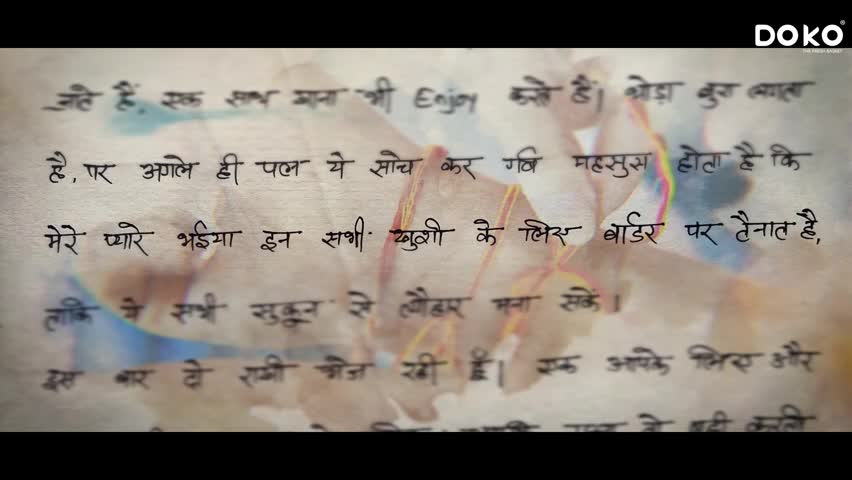 DOKO
THE FRESH BASKET
जाते हैं, एक साथ खाना भी Enjoy करते हैं। थोड़ा बुरा लगता
है, पर अगले ही पल ये सोच कर गर्व महसुस होता है कि
मेरे प्यारे भईया इन सभी खुशी के लिए बार्डर पर तैनात है,
ताकि ये सभी सुकून से त्यौहार मना सकें।
इस बार दो राखी भेज रही हूँ। एक आपके लिए और